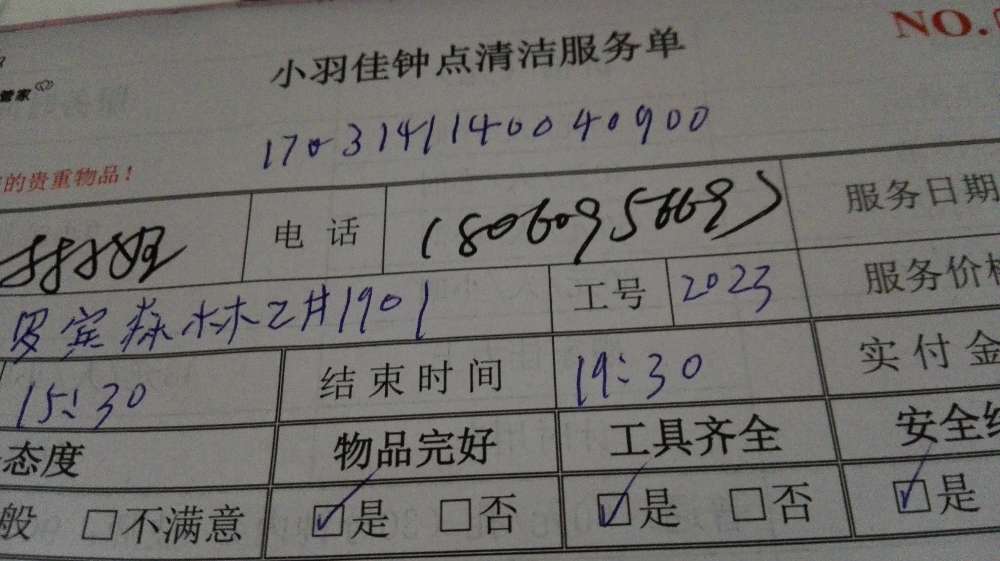 NO.
小羽佳钟点清洁服务单
管家
170314114004 0900
的贵重物品!
电话 服务日期
罗宾森林2#1901 工号 2023 服务价格
15:30 结束时间 19:30 实付金
态度 物品完好 工具齐全 安全
般 □不满意 ☑是 □否 ☑是 □否 ☑是